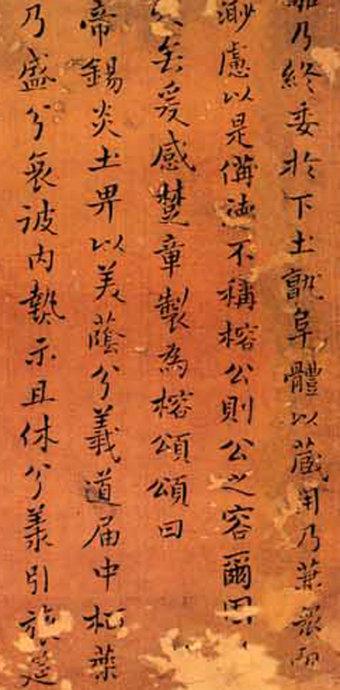 乃終委於下土阜體以蔵用乃葉
渺慮以是不稱榕公則公之容爾因
矣爰感楚章製為榕頌頌曰
帝錫炎土畀以美蔭兮義道届中葉
乃盛兮内示且休兮引